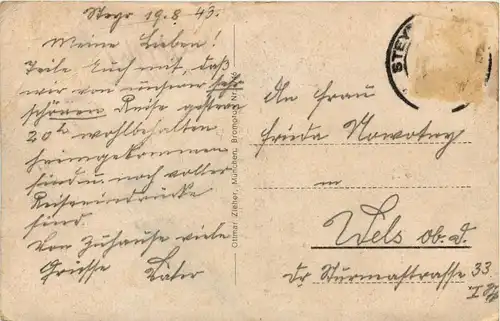 Steyr 19.8.43.
Meine Lieben!
Teile Euch mit, daß
wir von unserer sehr
schönen Reise gestern
20h wohlbehalten
heimgekommen
sind u. noch voller
Reiseeindrücke
sind.
Von Zuhause viele
Grüsse
Ottmar Zieher, München, Bromoton
STEY
An Frau
Frida Nowotny
in
Wels ob. d.
Dr Sturmastrasse 33